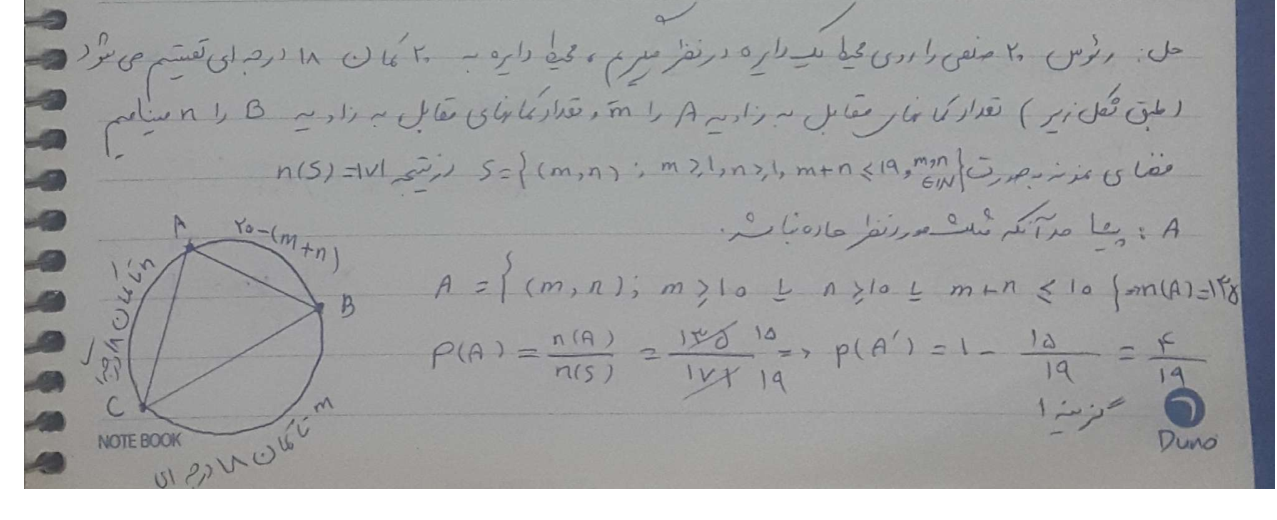 حل: رئوس ۲۰ ضلعی را روی محیط یک دایره در نظر میگیریم، محیط دایره به ۲۰ کمان ۱۸ درجه ای تقسیم می شود
(طبق شکل زیر) تعداد کمانهای مقابل به زاویه A را m و تعداد کمانهای مقابل به زاویه B را n مینامیم
فضای نمونه بصورت S={(m,n); m≥1, n≥1, m+n≤19, m,n∈IN} در نتیجه n(S)=۱۷۱
A: پیشامد آنکه مثلث مورد نظر حاده نباشد.
A={(m,n); m≥10 یا n≥10 یا m+n≤10} ⇒ n(A)=۱۳۵
P(A)=n(A)/n(S)=۱۳۵/۱۷۱ ۱۵/۱۹ ⇒ P(A′)=1-۱۵/۱۹=۴/۱۹
گزینه ۱
A
۲۰-(m+n)
B
n تا کمان ۱۸ درجه ای
C
m تا کمان ۱۸ درجه ای
NOTE BOOK
Duno